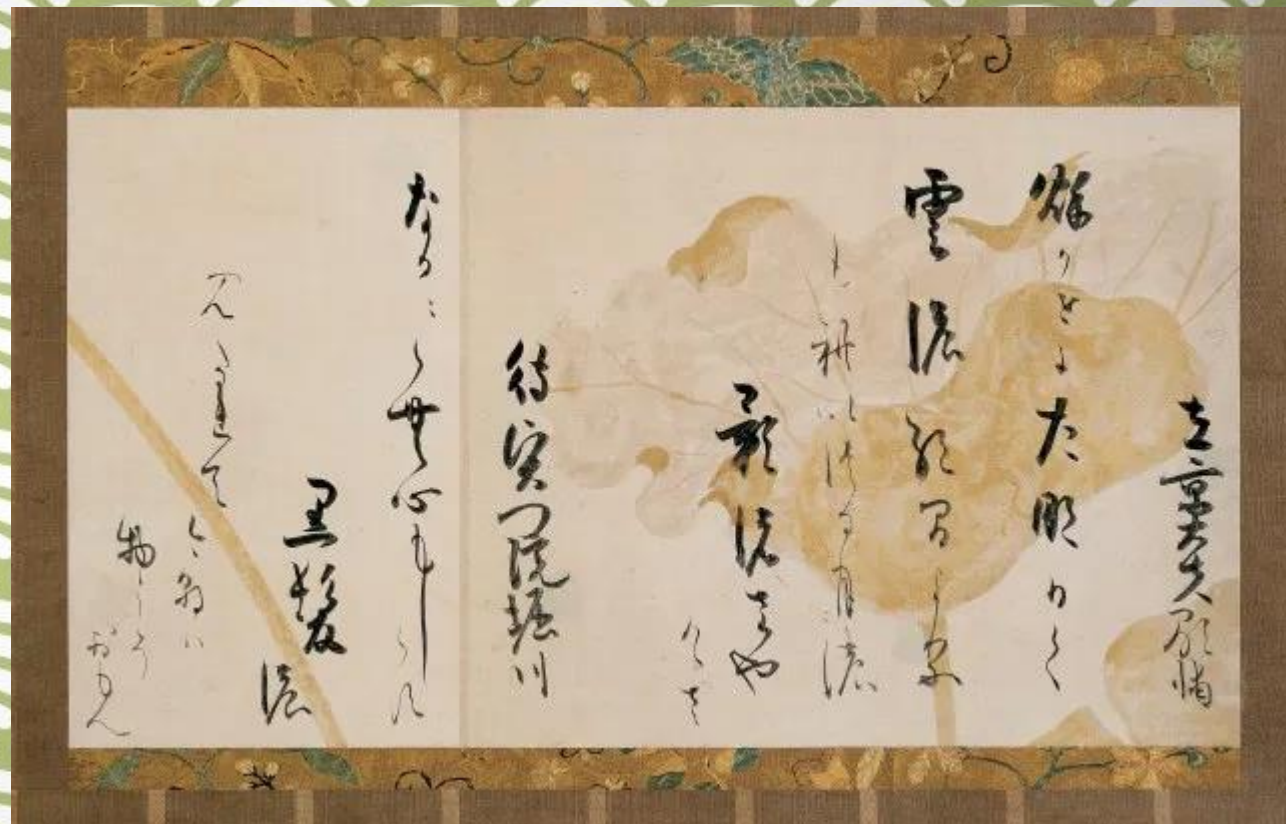 左京大夫顕輔
秋かせにたなひく
雲濃絶間より
もれいつる月濃
影濃さや
けさ
待賢門院堀川
なかゝらん心もしらす
黒髪
濃
みたれて
今朝ハ
物をこそ
おもへ